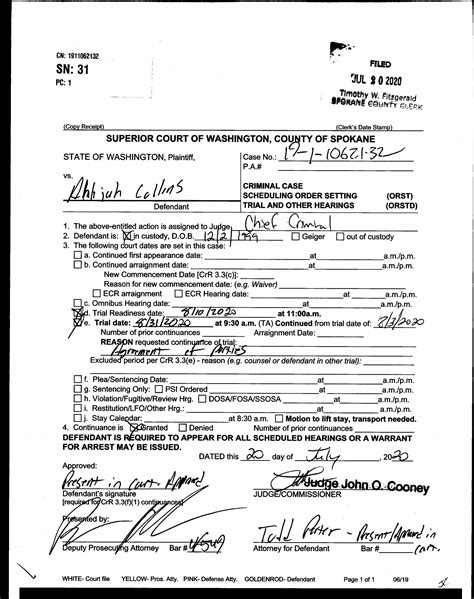 CN: 1911062132
SN: 31
PC: 1
FILED
JUL 20 2020
Timothy W. Fitzgerald
SPOKANE COUNTY CLERK
(Copy Receipt) (Clerk's Date Stamp)
SUPERIOR COURT OF WASHINGTON, COUNTY OF SPOKANE
STATE OF WASHINGTON, Plaintiff, Case No.: 19-1-10621-32
P.A.#
vs.
Collins
Defendant
CRIMINAL CASE
SCHEDULING ORDER SETTING (ORST)
TRIAL AND OTHER HEARINGS (ORSTD)
1. The above-entitled action is assigned to Judge Chief Criminal
2. Defendant is: in custody, D.O.B. 12/2/1999 Geiger out of custody
3. The following court dates are set in this case:
a. Continued first appearance date: at a.m./p.m.
b. Continued arraignment date: at a.m./p.m.
New Commencement Date [CrR 3.3(c)]:
Reason for new commencement date: (e.g. Waiver)
ECR arraignment ECR Hearing date: at a.m./p.m.
c. Omnibus Hearing date: at a.m./p.m.
d. Trial Readiness date: 8/10/2020 at 11:00a.m.
e. Trial date: 8/31/2020 at 9:30 a.m. (TA) Continued from trial date of: 8/3/2020
Number of prior continuances Arraignment Date:
REASON requested continuance of trial:
Agreement of Parties
Excluded period per CrR 3.3(e) - reason (e.g. counsel or defendant in other trial):
f. Plea/Sentencing Date: at a.m./p.m.
g. Sentencing Only: PSI Ordered at a.m./p.m.
h. Violation/Fugitive/Review Hrg. DOSA/FOSA/SSOSA at a.m./p.m.
i. Restitution/LFO/Other Hrg.: at a.m./p.m.
j. Stay Calendar: at 8:30 a.m. Motion to lift stay, transport needed.
4. Continuance is Granted Denied Number of prior continuances
DEFENDANT IS REQUIRED TO APPEAR FOR ALL SCHEDULED HEARINGS OR A WARRANT
FOR ARREST MAY BE ISSUED.
DATED this 20 day of July, 2020
Approved:
Present in Court Approved
Judge John O. Cooney
Defendant's signature JUDGE/COMMISSIONER
[required for CrR 3.3(f)(1) continuances]
Presented by:
Todd Porter - Present/Approved in Court
Deputy Prosecuting Attorney Bar # Attorney for Defendant Bar #
WHITE- Court file YELLOW- Pros. Atty. PINK- Defense Atty. GOLDENROD- Defendant Page 1 of 1 06/19